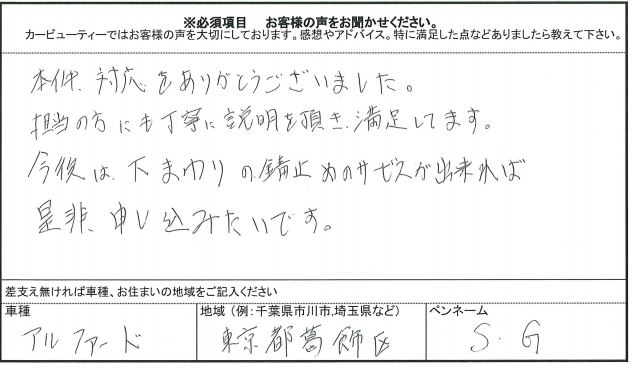 ※必須項目　お客様の声をお聞かせください。
カービューティーではお客様の声を大切にしております。感想やアドバイス。特に満足した点などありましたら教えて下さい。
本件、対応をありがとうございました。
担当の方にも丁寧に説明を頂き、満足してます。
今後は、下まわりの錆止めのサービスが出来れば
是非、申し込みたいです。
差支え無ければ車種、お住まいの地域をご記入ください
車種　地域（例：千葉県市川市,埼玉県など）　ペンネーム
アルファード　東京都葛飾区　S.G